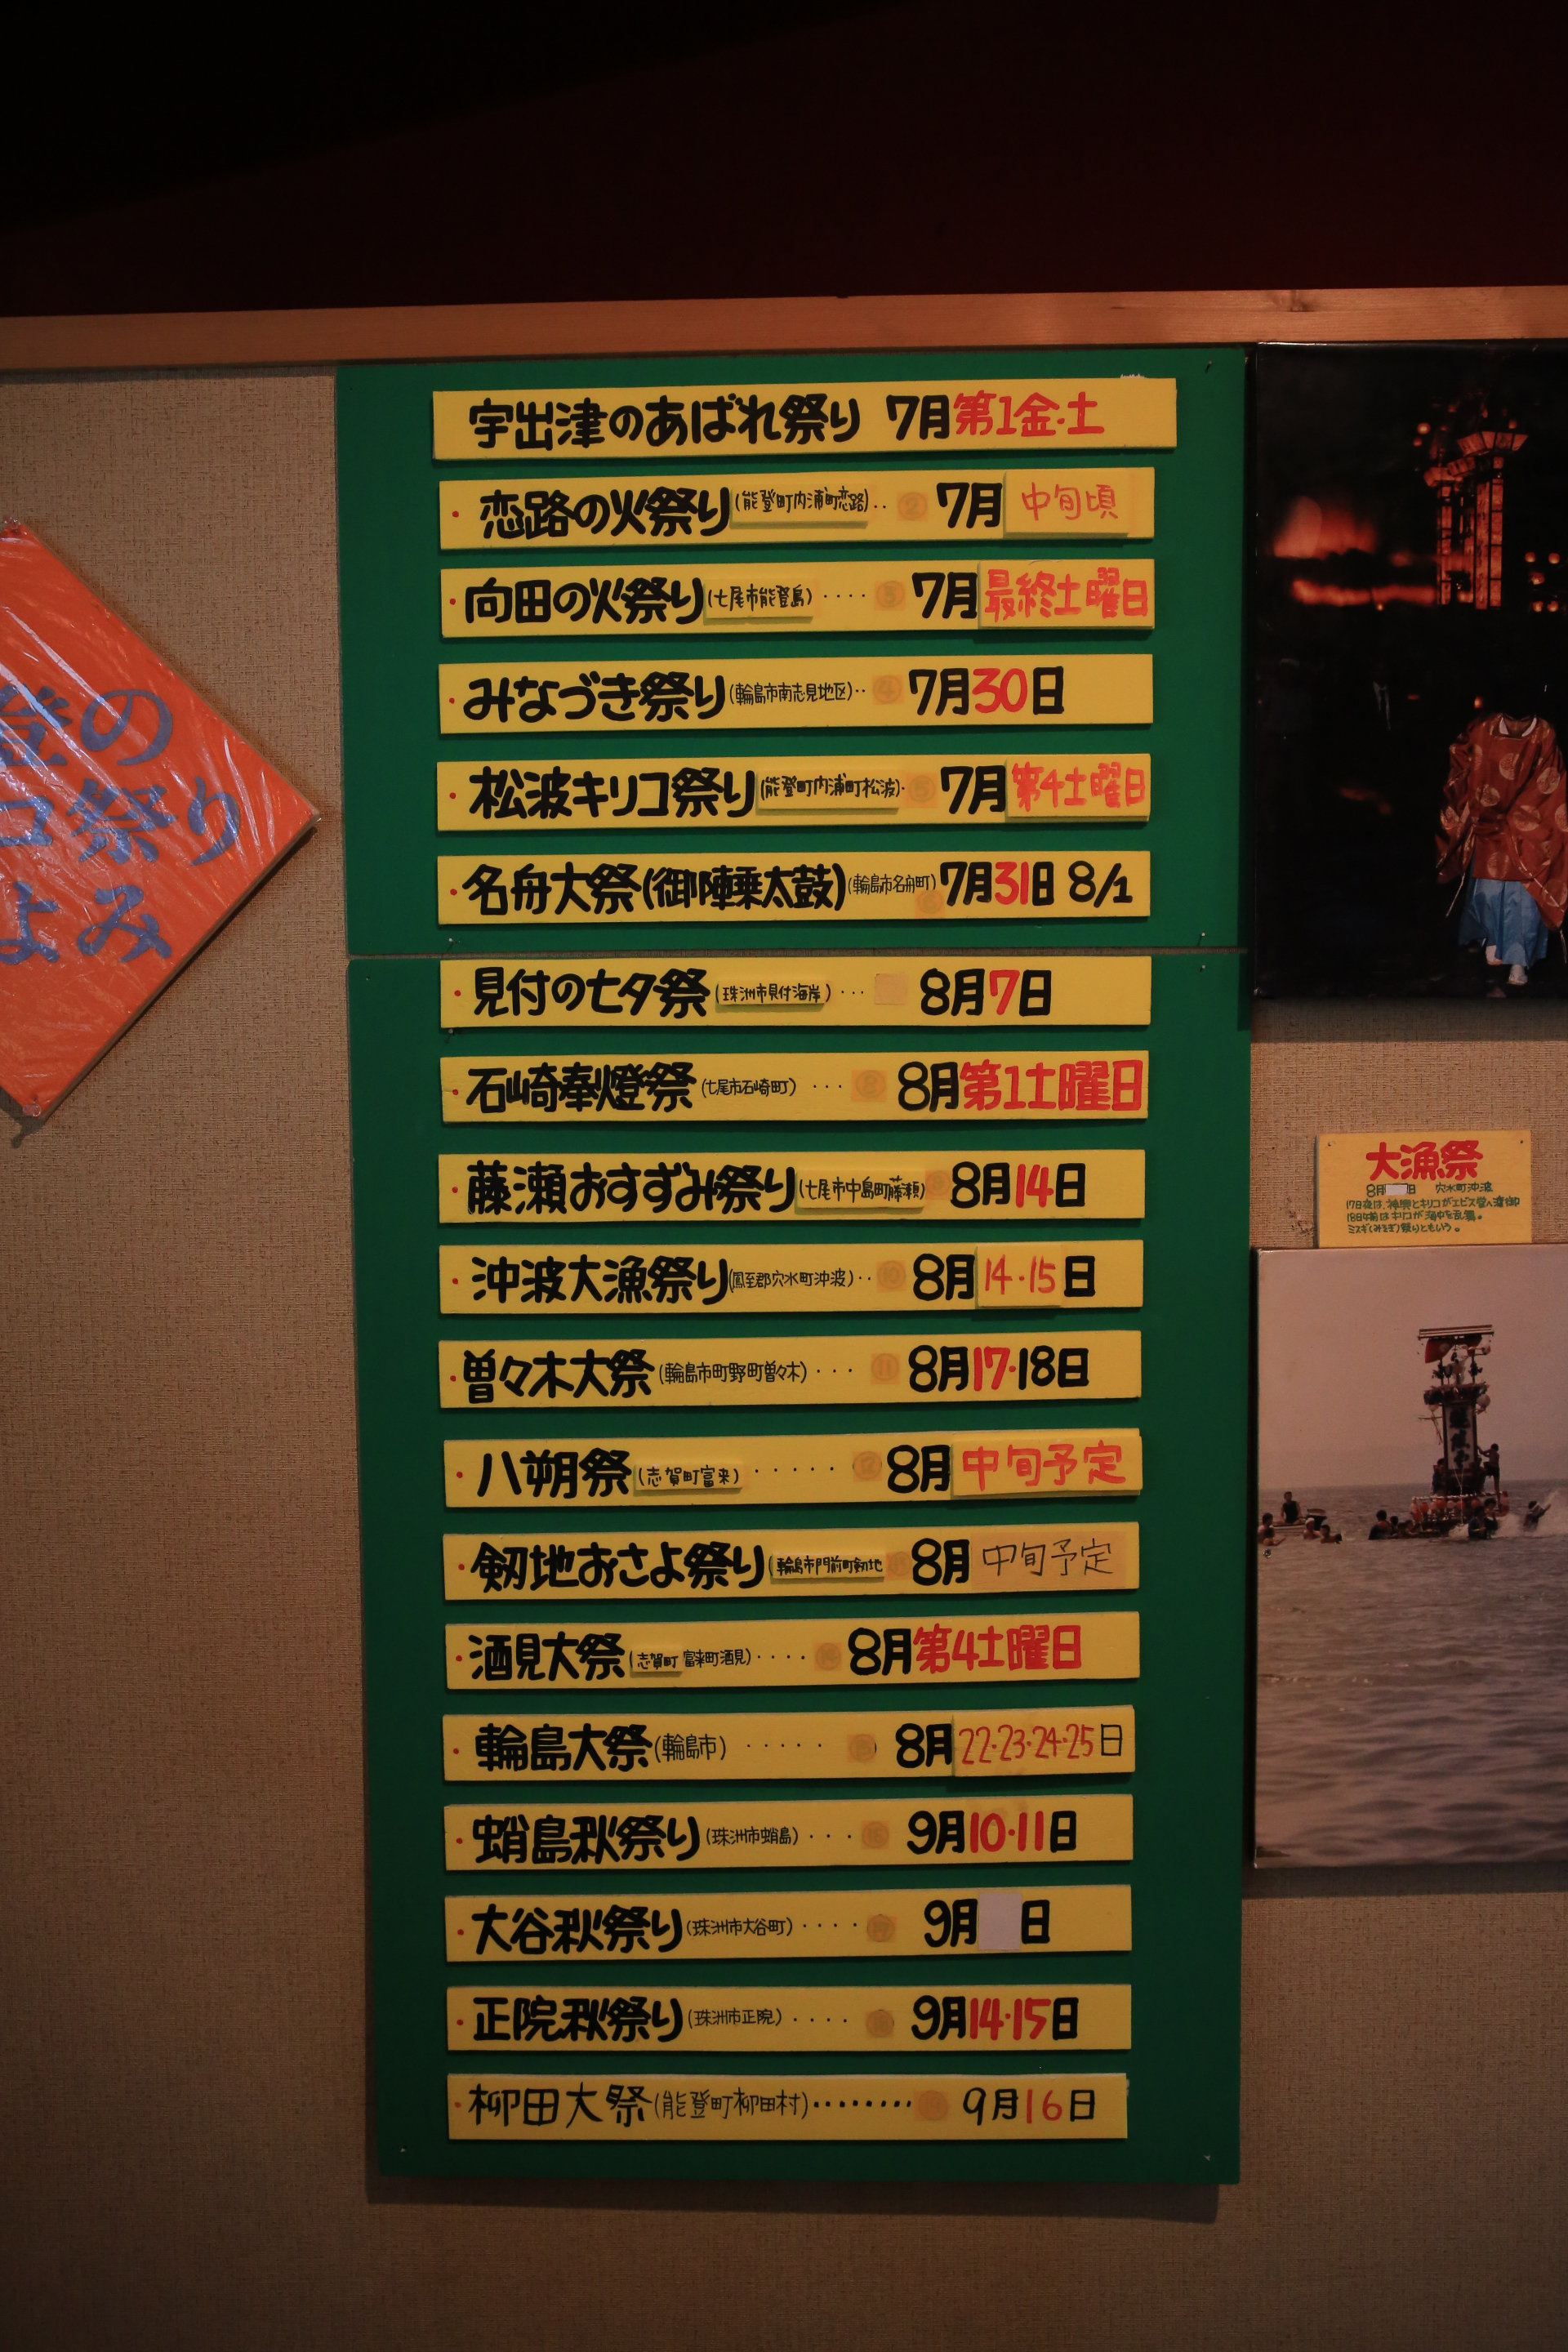 登の
コ祭り
よみ
宇出津のあばれ祭り 7月第1金・土
・恋路の火祭り(能登町内浦町恋路)・・② 7月 中旬頃
・向田の火祭り(七尾市能登島)・・・・③ 7月最終土曜日
・みなづき祭り(輪島市南志見地区)・・④ 7月30日
・松波キリコ祭り(能登町内浦町松波)・⑤ 7月第4土曜日
・名舟大祭(御陣乗太鼓)(輪島市名舟町) 7月31日 8/1
・見付の七夕祭(珠洲市見付海岸)・・・ 8月7日
・石崎奉燈祭(七尾市石崎町)・・・⑧ 8月第1土曜日
・藤瀬おすずみ祭り(七尾市中島町藤瀬) 8月14日
・沖波大漁祭り(鳳至郡穴水町沖波)・・⑩ 8月14・15日
・曽々木大祭(輪島市町野町曽々木)・・・⑪ 8月17・18日
・八朔祭(志賀町富来)・・・・・⑫ 8月中旬予定
・剱地おさよ祭り(輪島市門前町剱地 8月 中旬予定
・酒見大祭(志賀町富来町酒見)・・・・⑭ 8月第4土曜日
・輪島大祭(輪島市)・・・・・⑮ 8月22・23・24・25日
・蛸島秋祭り(珠洲市蛸島)・・・⑯ 9月10・11日
・大谷秋祭り(珠洲市大谷町)・・・・⑰ 9月 日
・正院秋祭り(珠洲市正院)・・・・⑱ 9月14・15日
・柳田大祭(能登町柳田村)・・・・・・・・ 9月16日
大漁祭
8月 日 穴水町沖波
17日夜は、神輿とキリコがエビス堂へ渡御
18日午前はキリコが海中を乱舞。
ミスギ(みそぎ)祭りともいう。